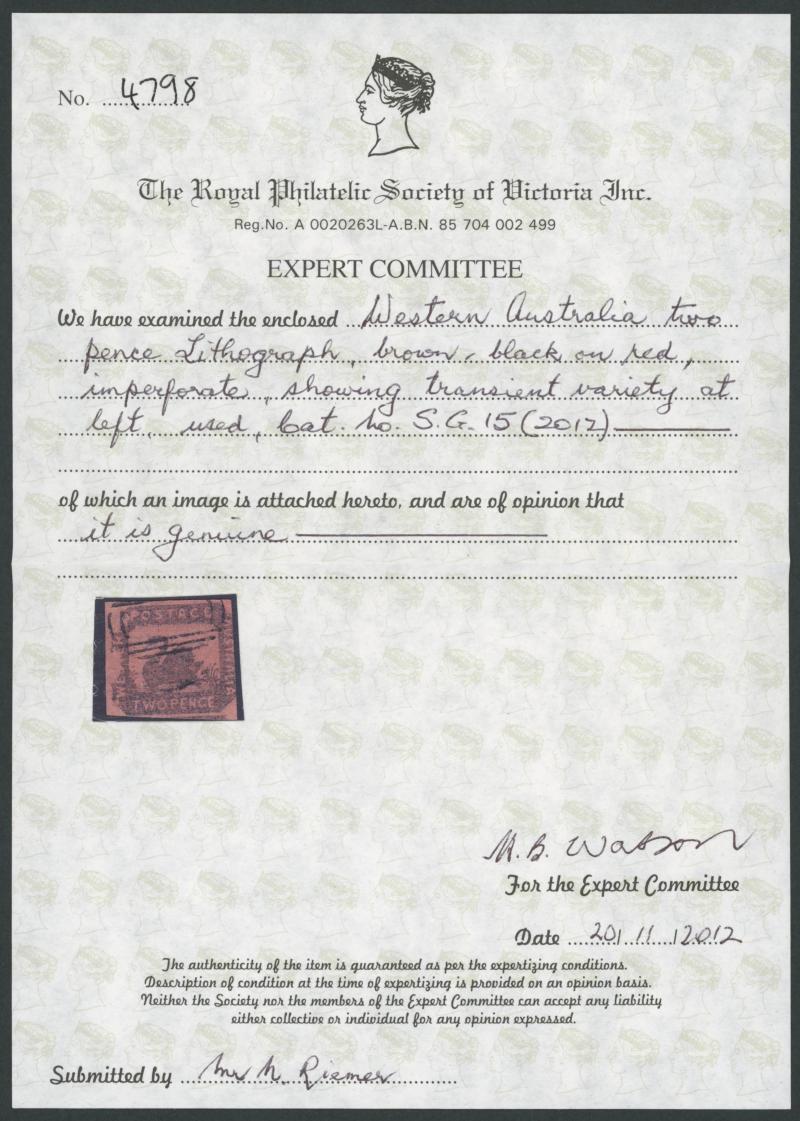 No. 4798
The Royal Philatelic Society of Victoria Inc.
Reg.No. A 0020263L-A.B.N. 85 704 002 499
EXPERT COMMITTEE
We have examined the enclosed Western Australia two
pence Lithograph, brown-black on red,
imperforate, showing transient variety at
left, used, Cat. No. S.G. 15 (2012)
of which an image is attached hereto, and are of opinion that
it is genuine
POSTAGE
TWO PENCE
M. B. Watson
For the Expert Committee
Date 20/11/2012
The authenticity of the item is guaranteed as per the expertizing conditions.
Description of condition at the time of expertizing is provided on an opinion basis.
Neither the Society nor the members of the Expert Committee can accept any liability
either collective or individual for any opinion expressed.
Submitted by Mr N. Riemer